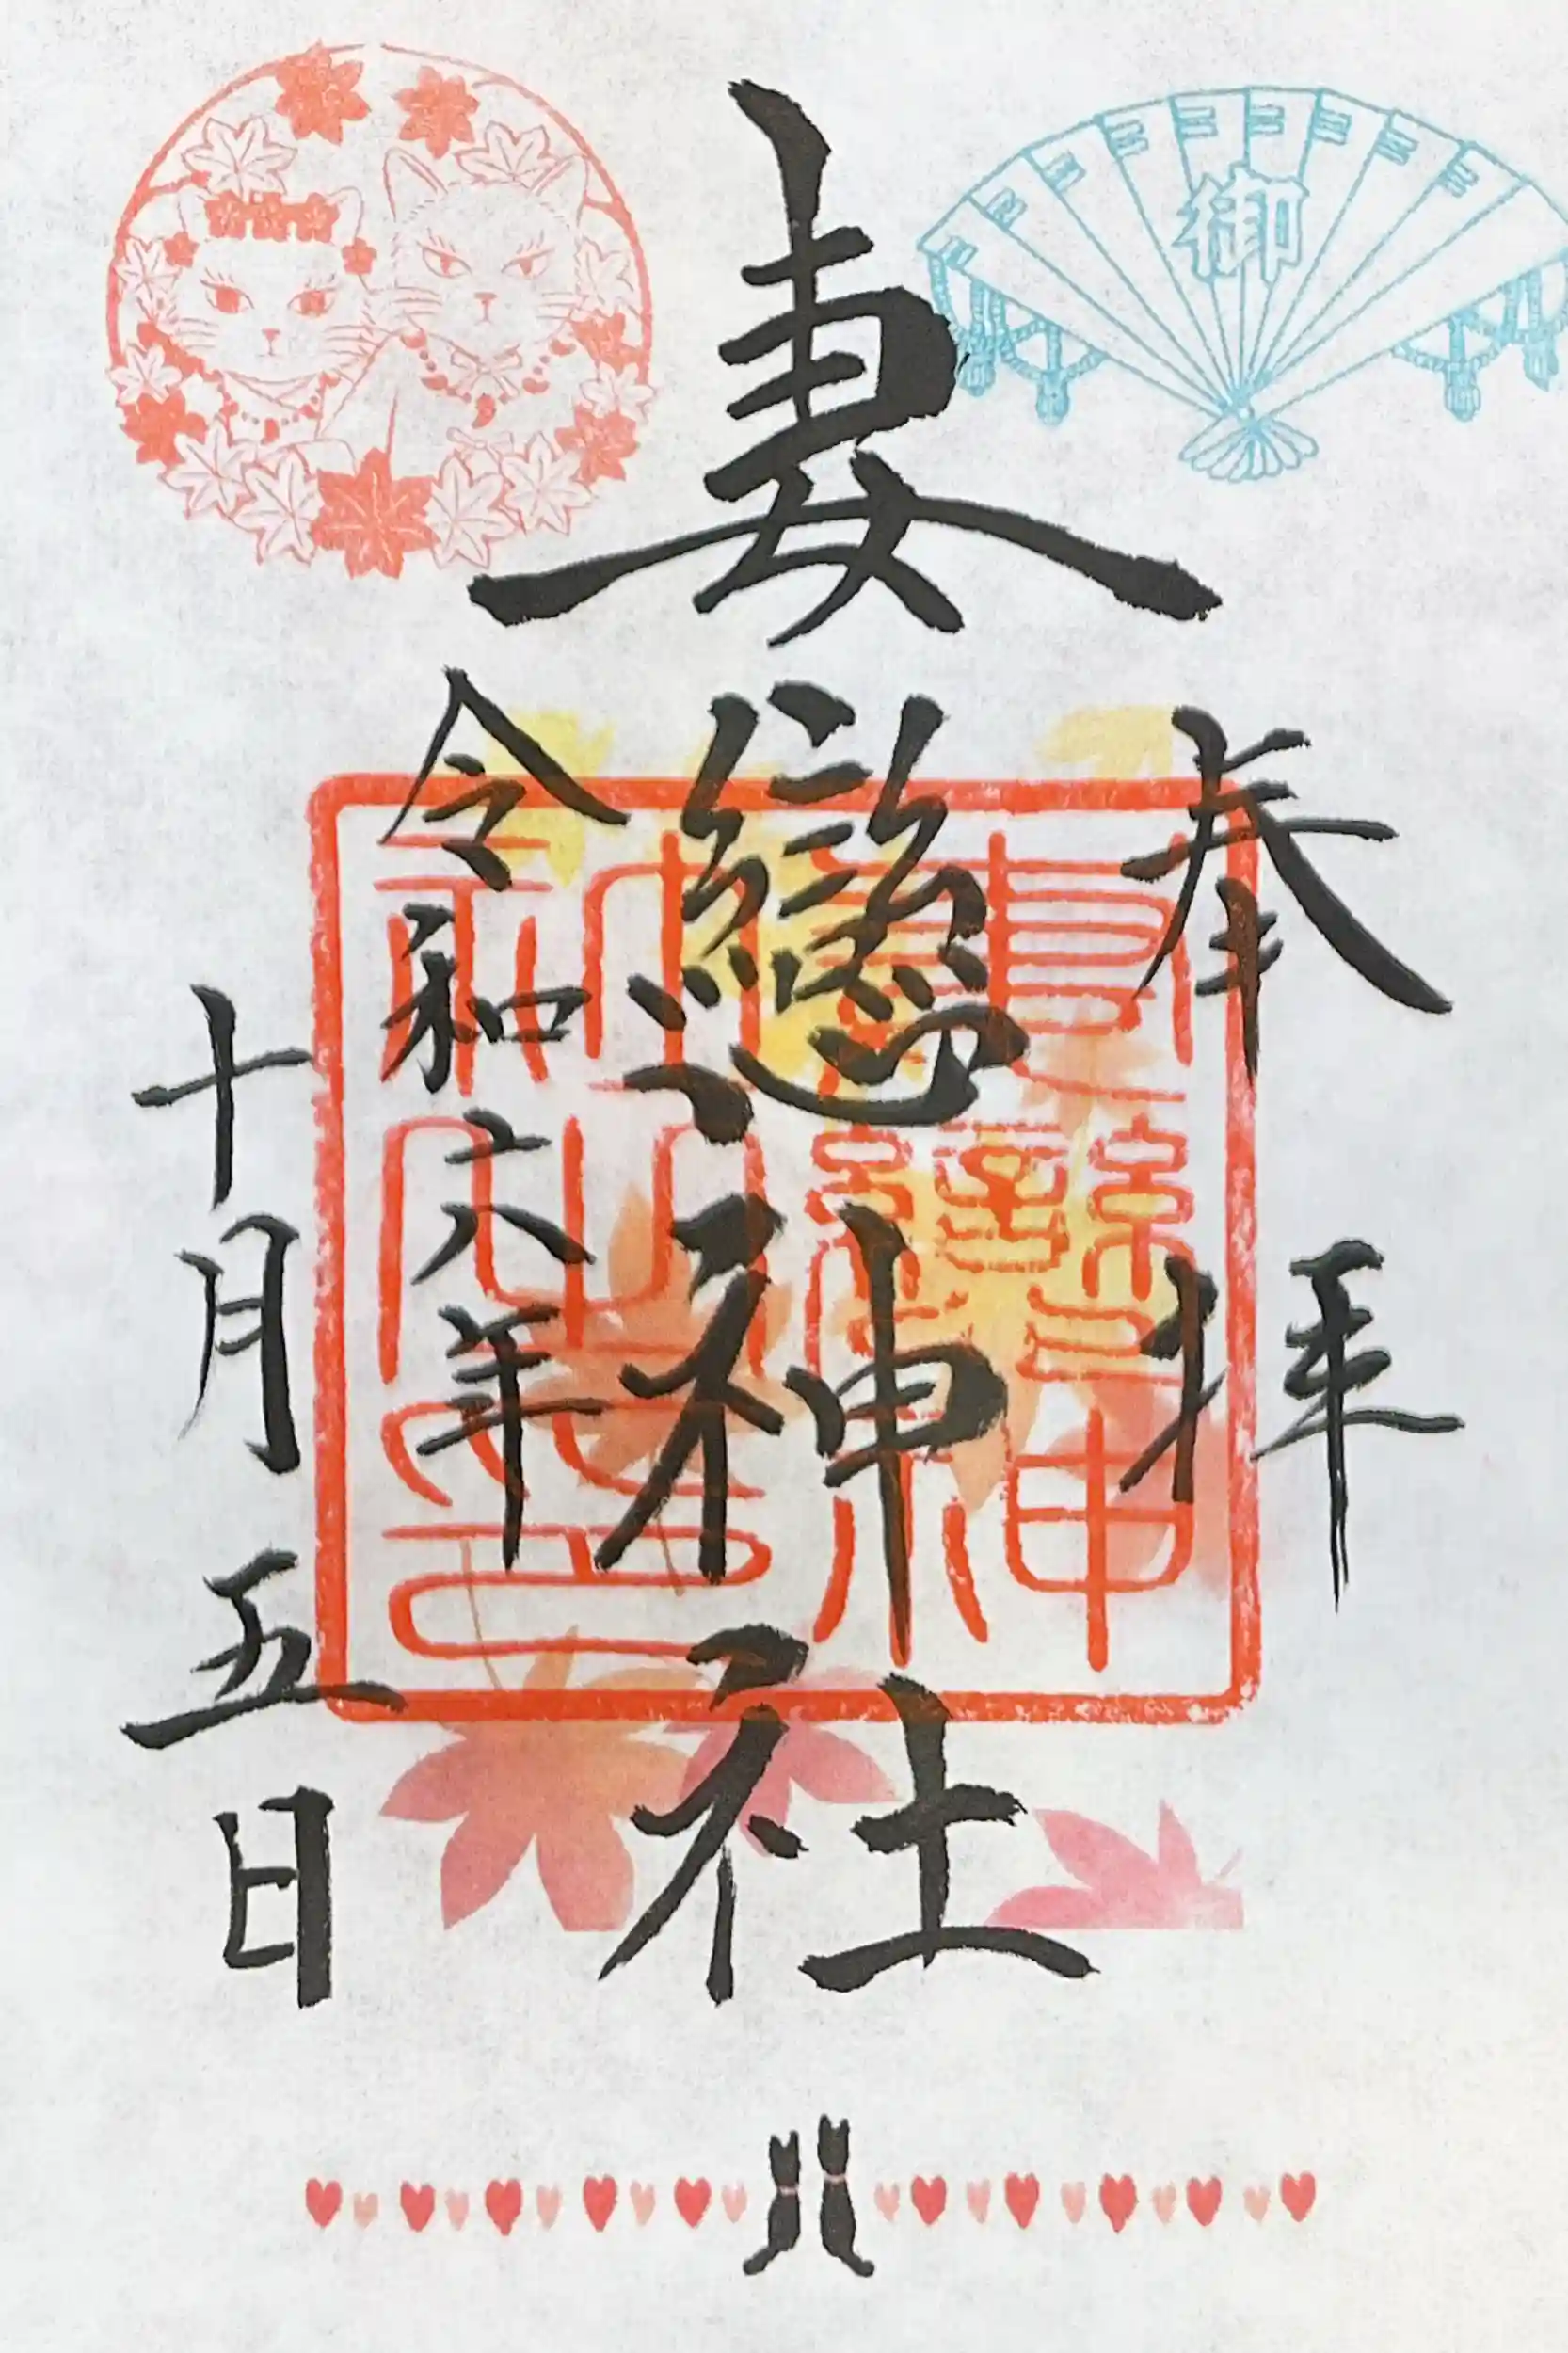 奉拝
妻戀神社
令和六年
十月五日
御
妻戀神社之印